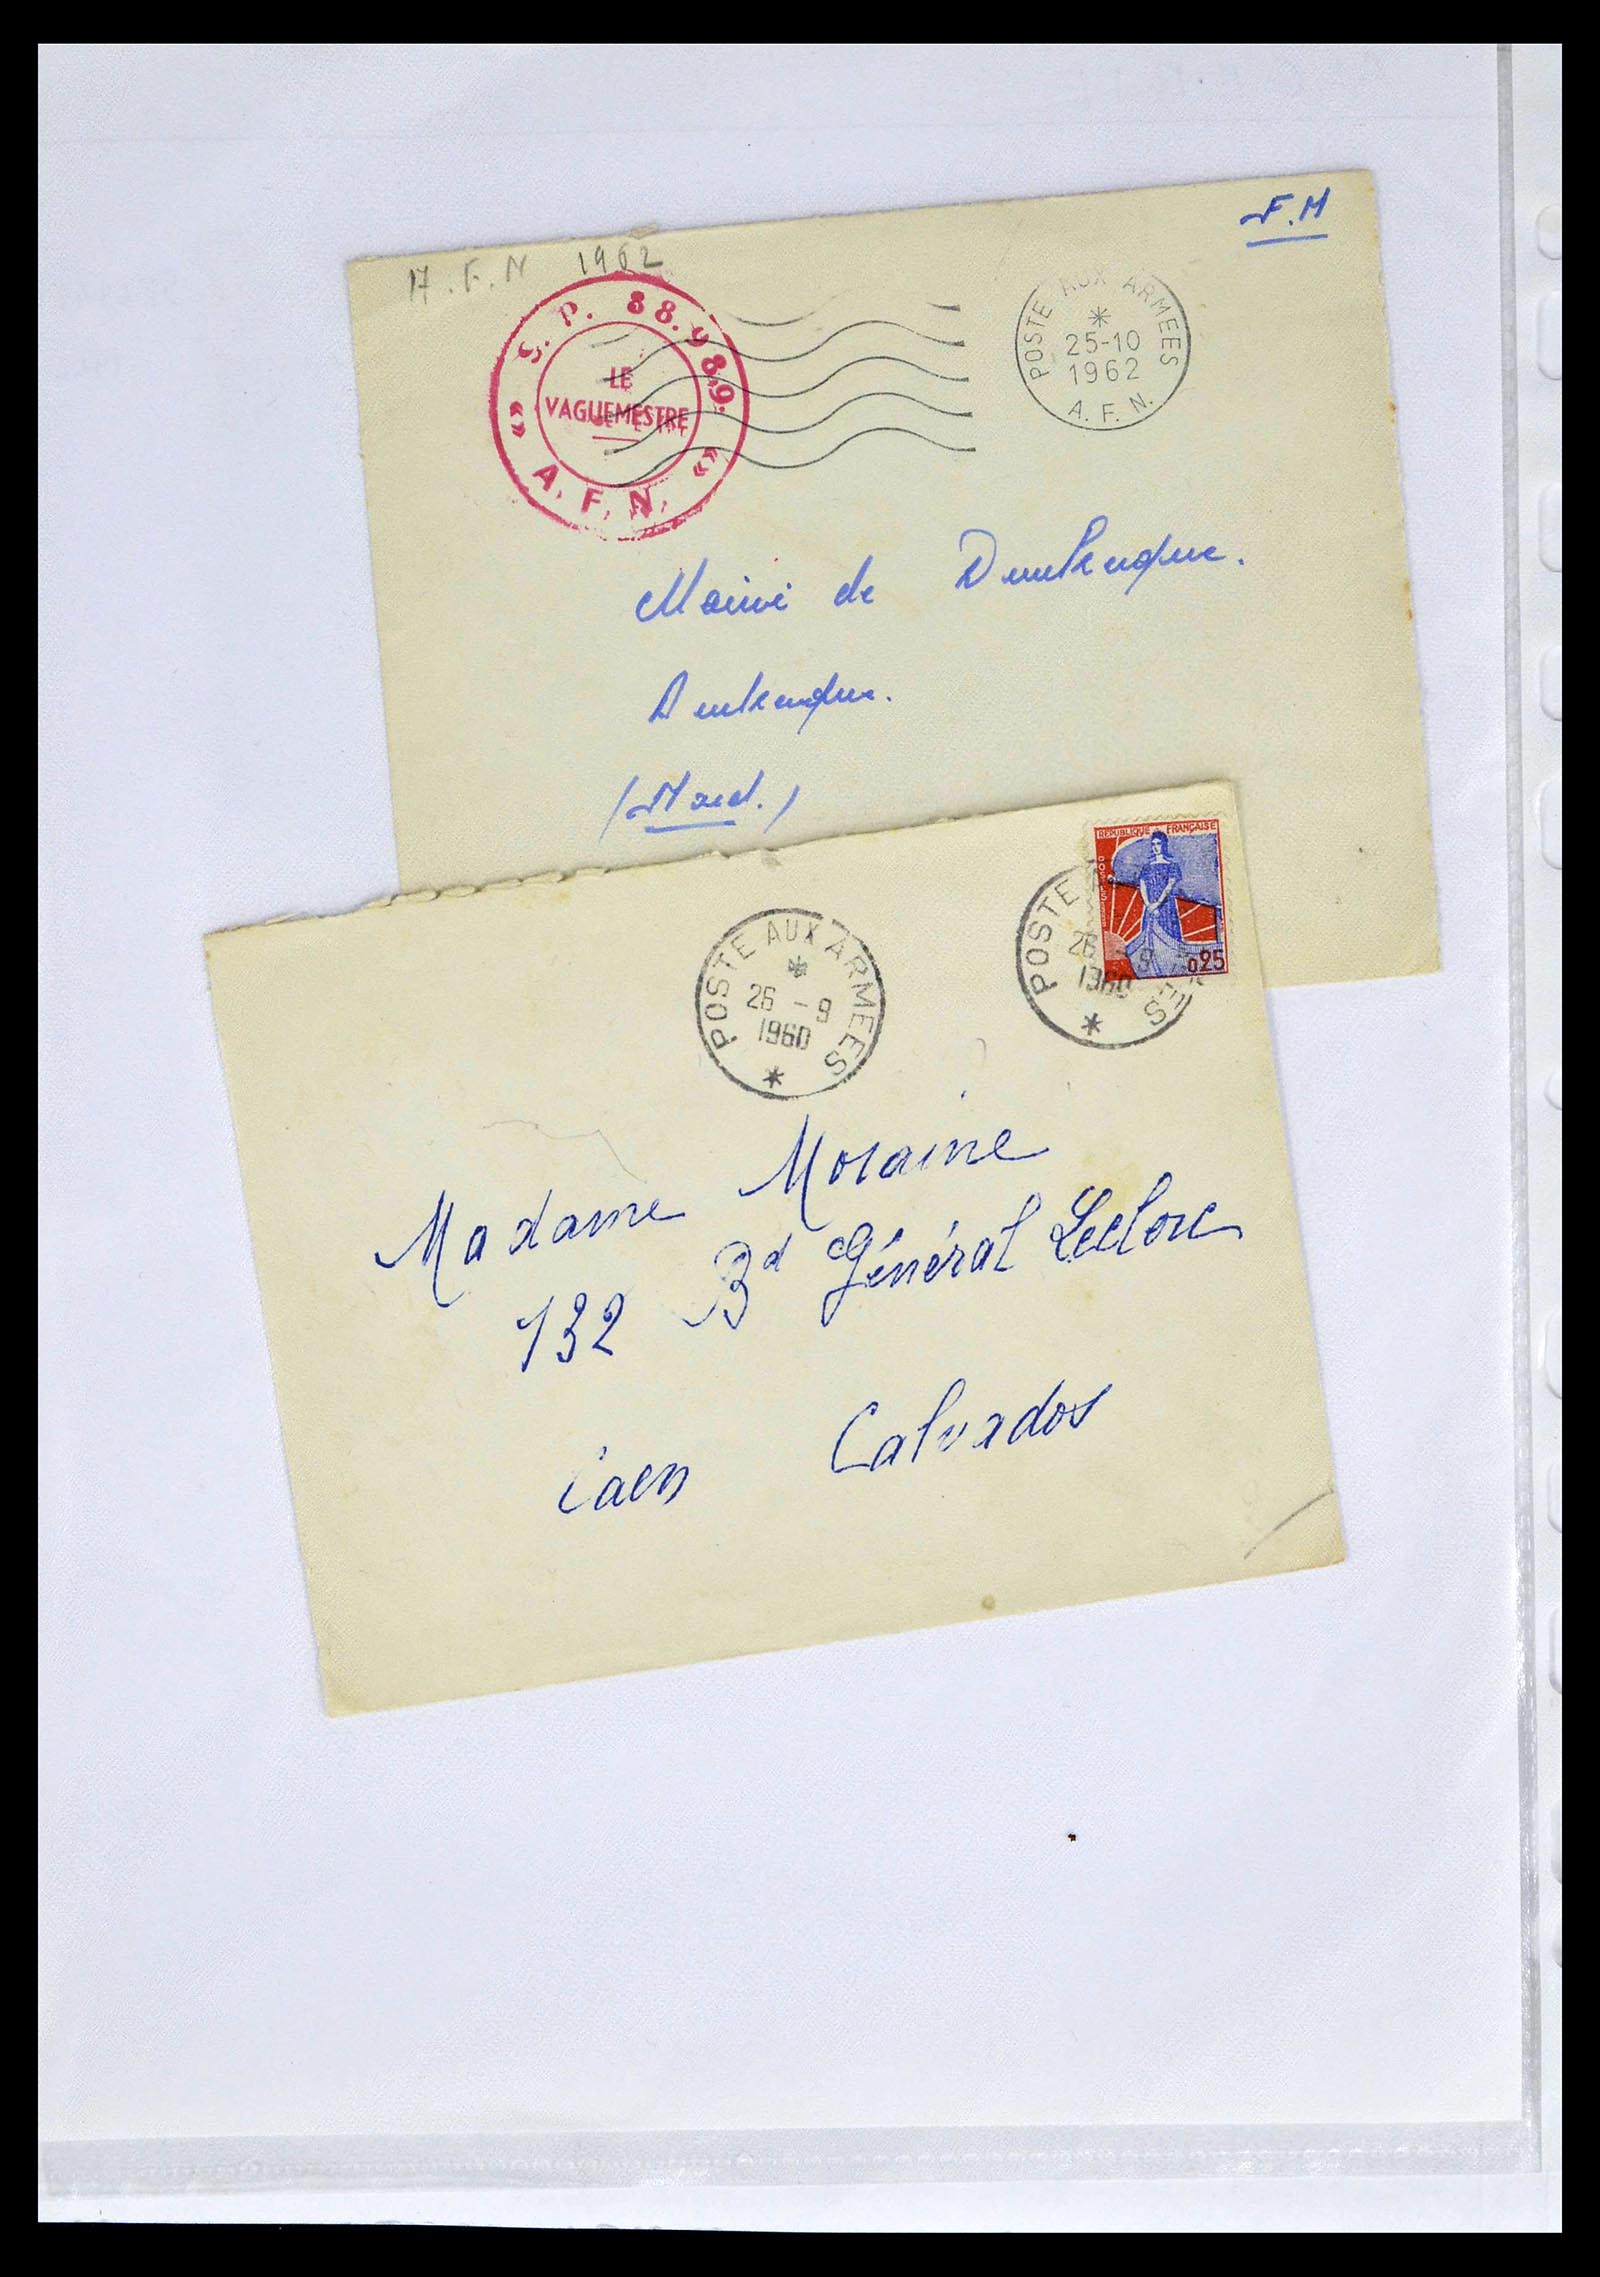 F.M
A.F.N 1962
S.P. 88.989.
LE
VAGUEMESTRE
A.F.N.
POSTE AUX ARMEES
25-10
1962
A.F.N.
Mairie de Dunkerque.
Dunkerque.
(Nord.)
REPUBLIQUE FRANÇAISE
POSTES
0,25
POSTE AUX ARMEES
26 - 9
1960
POSTE A
26 - 9
1960
ES
Madame Moraine
132 Bd Général Leclerc
Caen Calvados